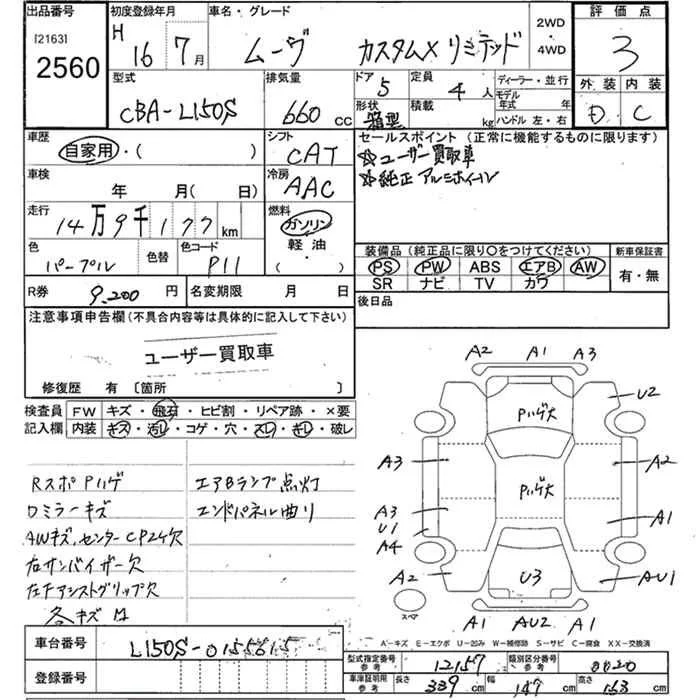 出品番号 初度登録年月 車名・グレード 2WD・4WD 評価点
[2163]
2560
H 16年 7月 ムーヴ カスタムX リミテッド 3
外装 内装
D C
型式 排気量 ドア 定員 ディーラー・並行
CBA-L150S 660cc 5 4人
形状 箱型 積載 kg モデル年式 年 ハンドル 左・右
車歴 シフト セールスポイント (正常に機能するものに限ります)
自家用・( ) CAT ☆ユーザー買取車
☆純正アルミホイール
車検 年 月(日) 冷房 AAC
走行 14万9千177km 燃料 ガソリン
軽油
( )
色 パープル 色替 色コード P11
装備品 (純正品に限り○をつけてください) 新車保証書
PS PW ABS エアB AW 有・無
SR ナビ TV カワ
R券 9,200円 名変期限 月 日 後日品
注意事項申告欄 (不具合内容等は具体的に記入して下さい)
ユーザー買取車
修復歴 有 〔箇所 〕
検査員 FW キズ・飛石・ヒビ割・リペア跡・×要
記入欄 内装 キズ・汚レ・コゲ・穴・スレ・キレ・破レ
RスポPハゲ エアBランプ点灯
Dミラーキズ エンドパネル曲り
AWキズ,センターCP24欠
右サンバイザー欠
左Fアシストグリップ欠
各キズ凹
A2 A1 A3
U2
Pハゲ大
A3 A2
Pハゲ大
A3 A1
U1
A4
A2 U3 AU1
スペア
A1 AU2 A1
A-キズ E-エクボ U-凹み W-補修跡 S-サビ C-腐食 XX-交換済
車台番号 L150S-0155615
登録番号
型式指定番号 参考 12157 類別区分番号 参考 0020
車庫証明用 参考 長さ 339cm 幅 147cm 高さ 163cm